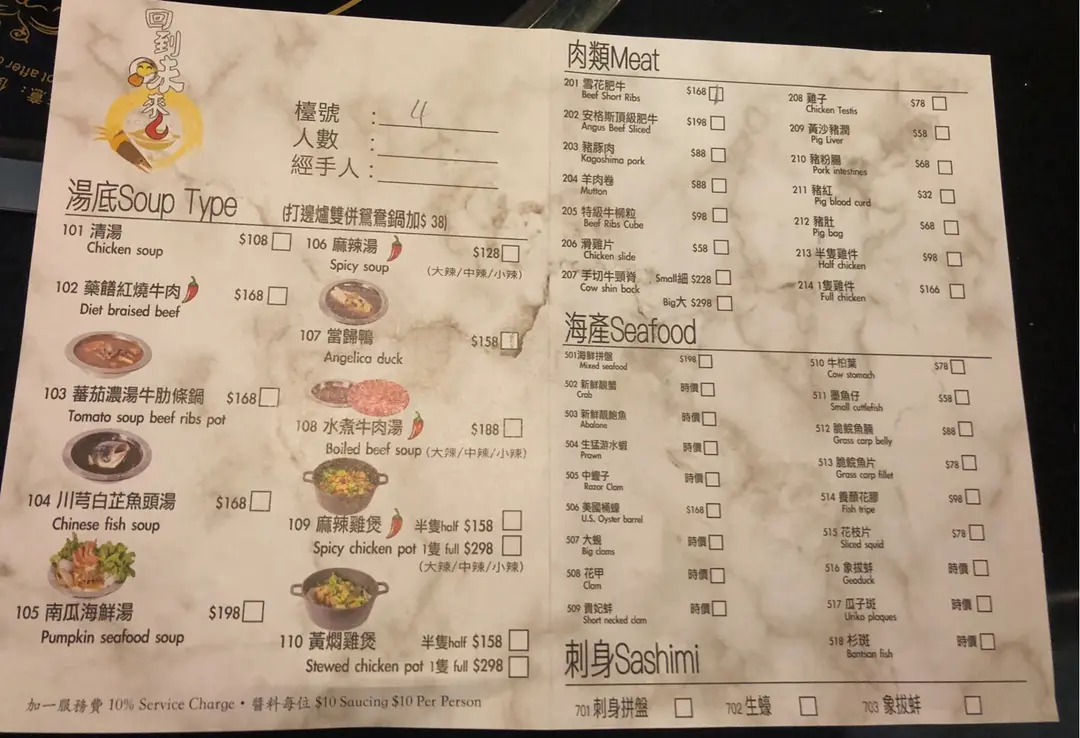 回到未來
檯號 : 4
人數 :
經手人 :
湯底Soup Type (打邊爐雙併鴛鴦鍋加$ 38)
101 清湯 $108
Chicken soup
102 藥饍紅燒牛肉 $168
Diet braised beef
103 蕃茄濃湯牛肋條鍋 $168
Tomato soup beef ribs pot
104 川芎白芷魚頭湯 $168
Chinese fish soup
105 南瓜海鮮湯 $198
Pumpkin seafood soup
106 麻辣湯 $128
Spicy soup (大辣/中辣/小辣)
107 當歸鴨 $158
Angelica duck
108 水煮牛肉湯 $188
Boiled beef soup (大辣/中辣/小辣)
109 麻辣雞煲 半隻half $158
Spicy chicken pot 1隻 full $298
(大辣/中辣/小辣)
110 黃燜雞煲 半隻half $158
Stewed chicken pot 1隻 full $298
加一服務費 10% Service Charge • 醬料每位 $10 Saucing $10 Per Person
肉類Meat
201 雪花肥牛 $168
Beef Short Ribs
202 安格斯頂級肥牛 $198
Angus Beef Sliced
203 豬豚肉 $88
Kagoshima pork
204 羊肉卷 $88
Mutton
205 特級牛柳粒 $98
Beef Ribs Cube
206 滑雞片 $58
Chicken slide
207 手切牛頸脊 Small細 $228
Cow shin back
Big大 $298
208 雞子 $78
Chicken Testis
209 黃沙豬潤 $58
Pig Liver
210 豬粉腸 $68
Pork intestines
211 豬紅 $32
Pig blood curd
212 豬肚 $68
Pig bag
213 半隻雞件 $98
Half chicken
214 1隻雞件 $166
Full chicken
海產Seafood
501海鮮拼盤 $198
Mixed seafood
502 新鮮靚蟹 時價
Crab
503 新鮮靚鮑魚 時價
Abalone
504 生猛游水蝦 時價
Prawn
505 中蟶子 時價
Razor Clam
506 美國桶蠔 $168
U.S. Oyster barrel
507 大蜆 時價
Big clams
508 花甲 時價
Clam
509 貴妃蚌 時價
Short necked clam
510 牛柏葉 $78
Cow stomach
511 墨魚仔 $58
Small cuttlefish
512 脆鯇魚腩 $88
Grass carp belly
513 脆鯇魚片 $78
Grass carp fillet
514 養顏花膠 $98
Fish tripe
515 花枝片 $78
Sliced squid
516 象拔蚌 時價
Geoduck
517 瓜子斑 時價
Uriko plaques
518 杉斑 時價
Bantsan fish
刺身Sashimi
701刺身拼盤
702 生蠔
703 象拔蚌